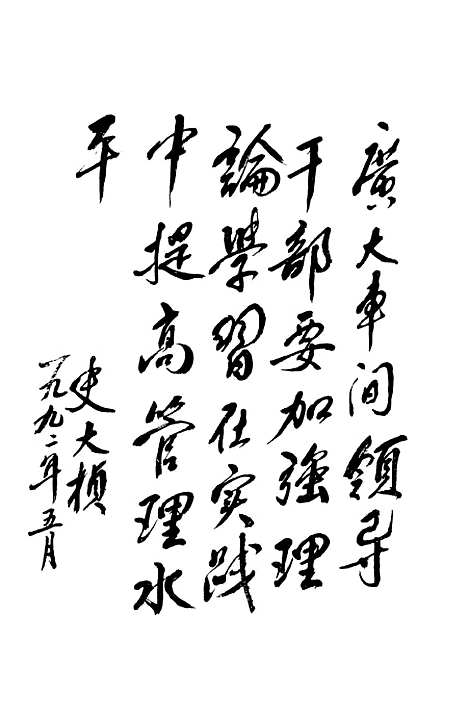 廣大車间領导
干部要加強理
論學習在实践
中提高管理水
平
史大桢
一九九二年五月